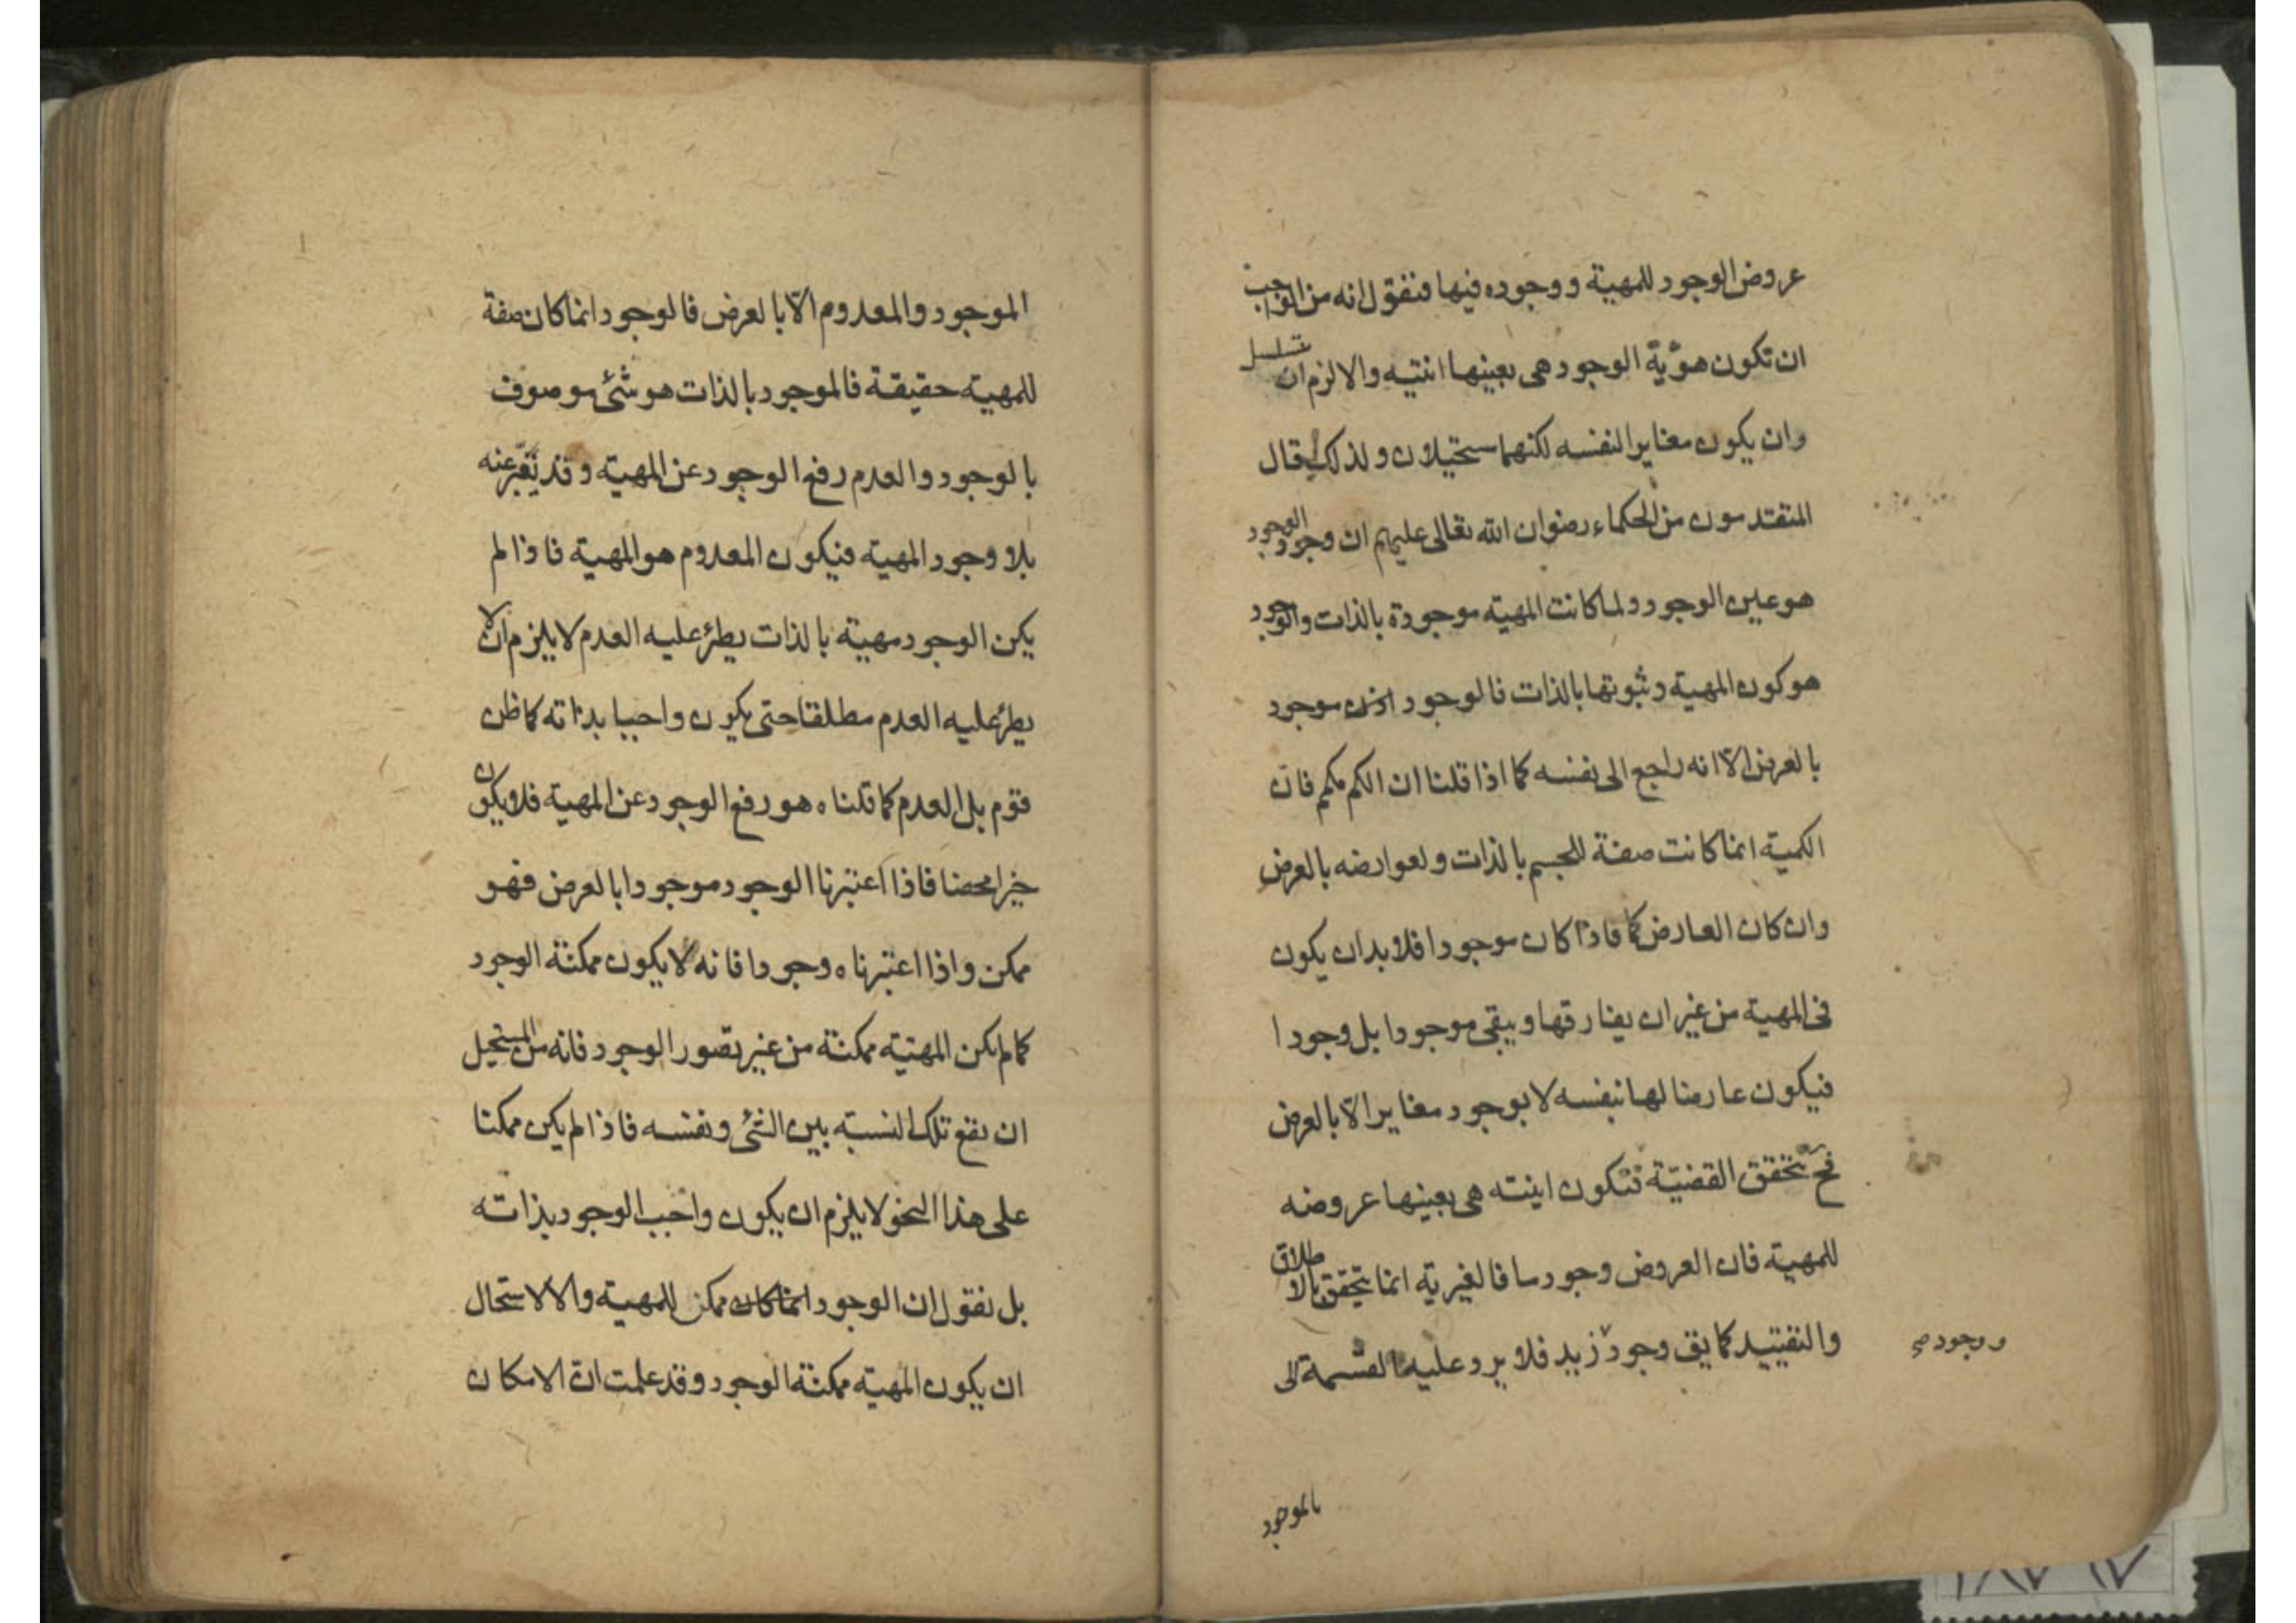 عروض الوجود للمهية و وجوده فيها فنقول انه من الواجب
ان تكون هوّية الوجود هى بعينها انتيه والا لزم ان يتسلسل
وان يكون مغايرا لنفسه لكنهما سحتيلان ولذلك قال
المتقدمون من الحكماء رضوان الله تعالى عليهم ان وجود الوجود
هو عين الوجود ولما كانت المهية موجودة بالذات والوجود
هو كون المهية و ثبوتها بالذات فالوجود اذن موجود
بالعرض الّا انه راجع الى نفسه كما اذا قلنا ان الكم مكمم فان
الكمية انما كانت صفة للجسم بالذات ولعوارضه بالعرض
وان كان العارض كما فاذا كان موجودا فلا بد ان يكون
فى المهية من غير ان يفارقها ويبقى موجودا بل وجودا
فيكون عارضا لها بنفسه لا بوجود مغايرا الّا بالعرض
فح تتحقق القضيّة فتكون اينته هى بعينها عروضه
للمهية فان العروض وجود ما فالغيريّه انما يتحقق بالاطلاق
والتقييد كما يق وجود زيد فلا يرد عليه القسمة الى
و وجود صح
بالموجود
الموجود والمعدوم الّا بالعرض فالوجود انما كان صفة
للمهية حقيقة فالموجود بالذات هو شئ موصوف
بالوجود والعدم رفع الوجود عن المهية وقد يعبّر عنه
بلا وجود المهية فيكون المعدوم هو المهية فاذا لم
يكن الوجود مهية بالذات يطرء عليه العدم لا يلزم ان لا
يطرء عليه العدم مطلقا حتى يكون واجبا بذاته كما ظن
قوم بل العدم كما قلناه هو رفع الوجود عن المهية فلا يكون
خيرا محضا فاذا اعتبرنا الوجود موجودا بالعرض فهو
ممكن واذا اعتبرناه وجودا فانه لا يكون ممكنة الوجود
كما لم يكن المهتيه ممكنة من غير تصور الوجود فانه من المستحيل
ان يقع تلك النسبة بين الشئ ونفسه فاذا لم يكن ممكنا
على هذا النحو لا يلزم ان يكون واجب الوجود بذاته
بل نقول ان الوجود انما كان ممكن للمهية والا لاستحال
ان يكون المهية ممكنة الوجود وقد علمت انّ الامكان